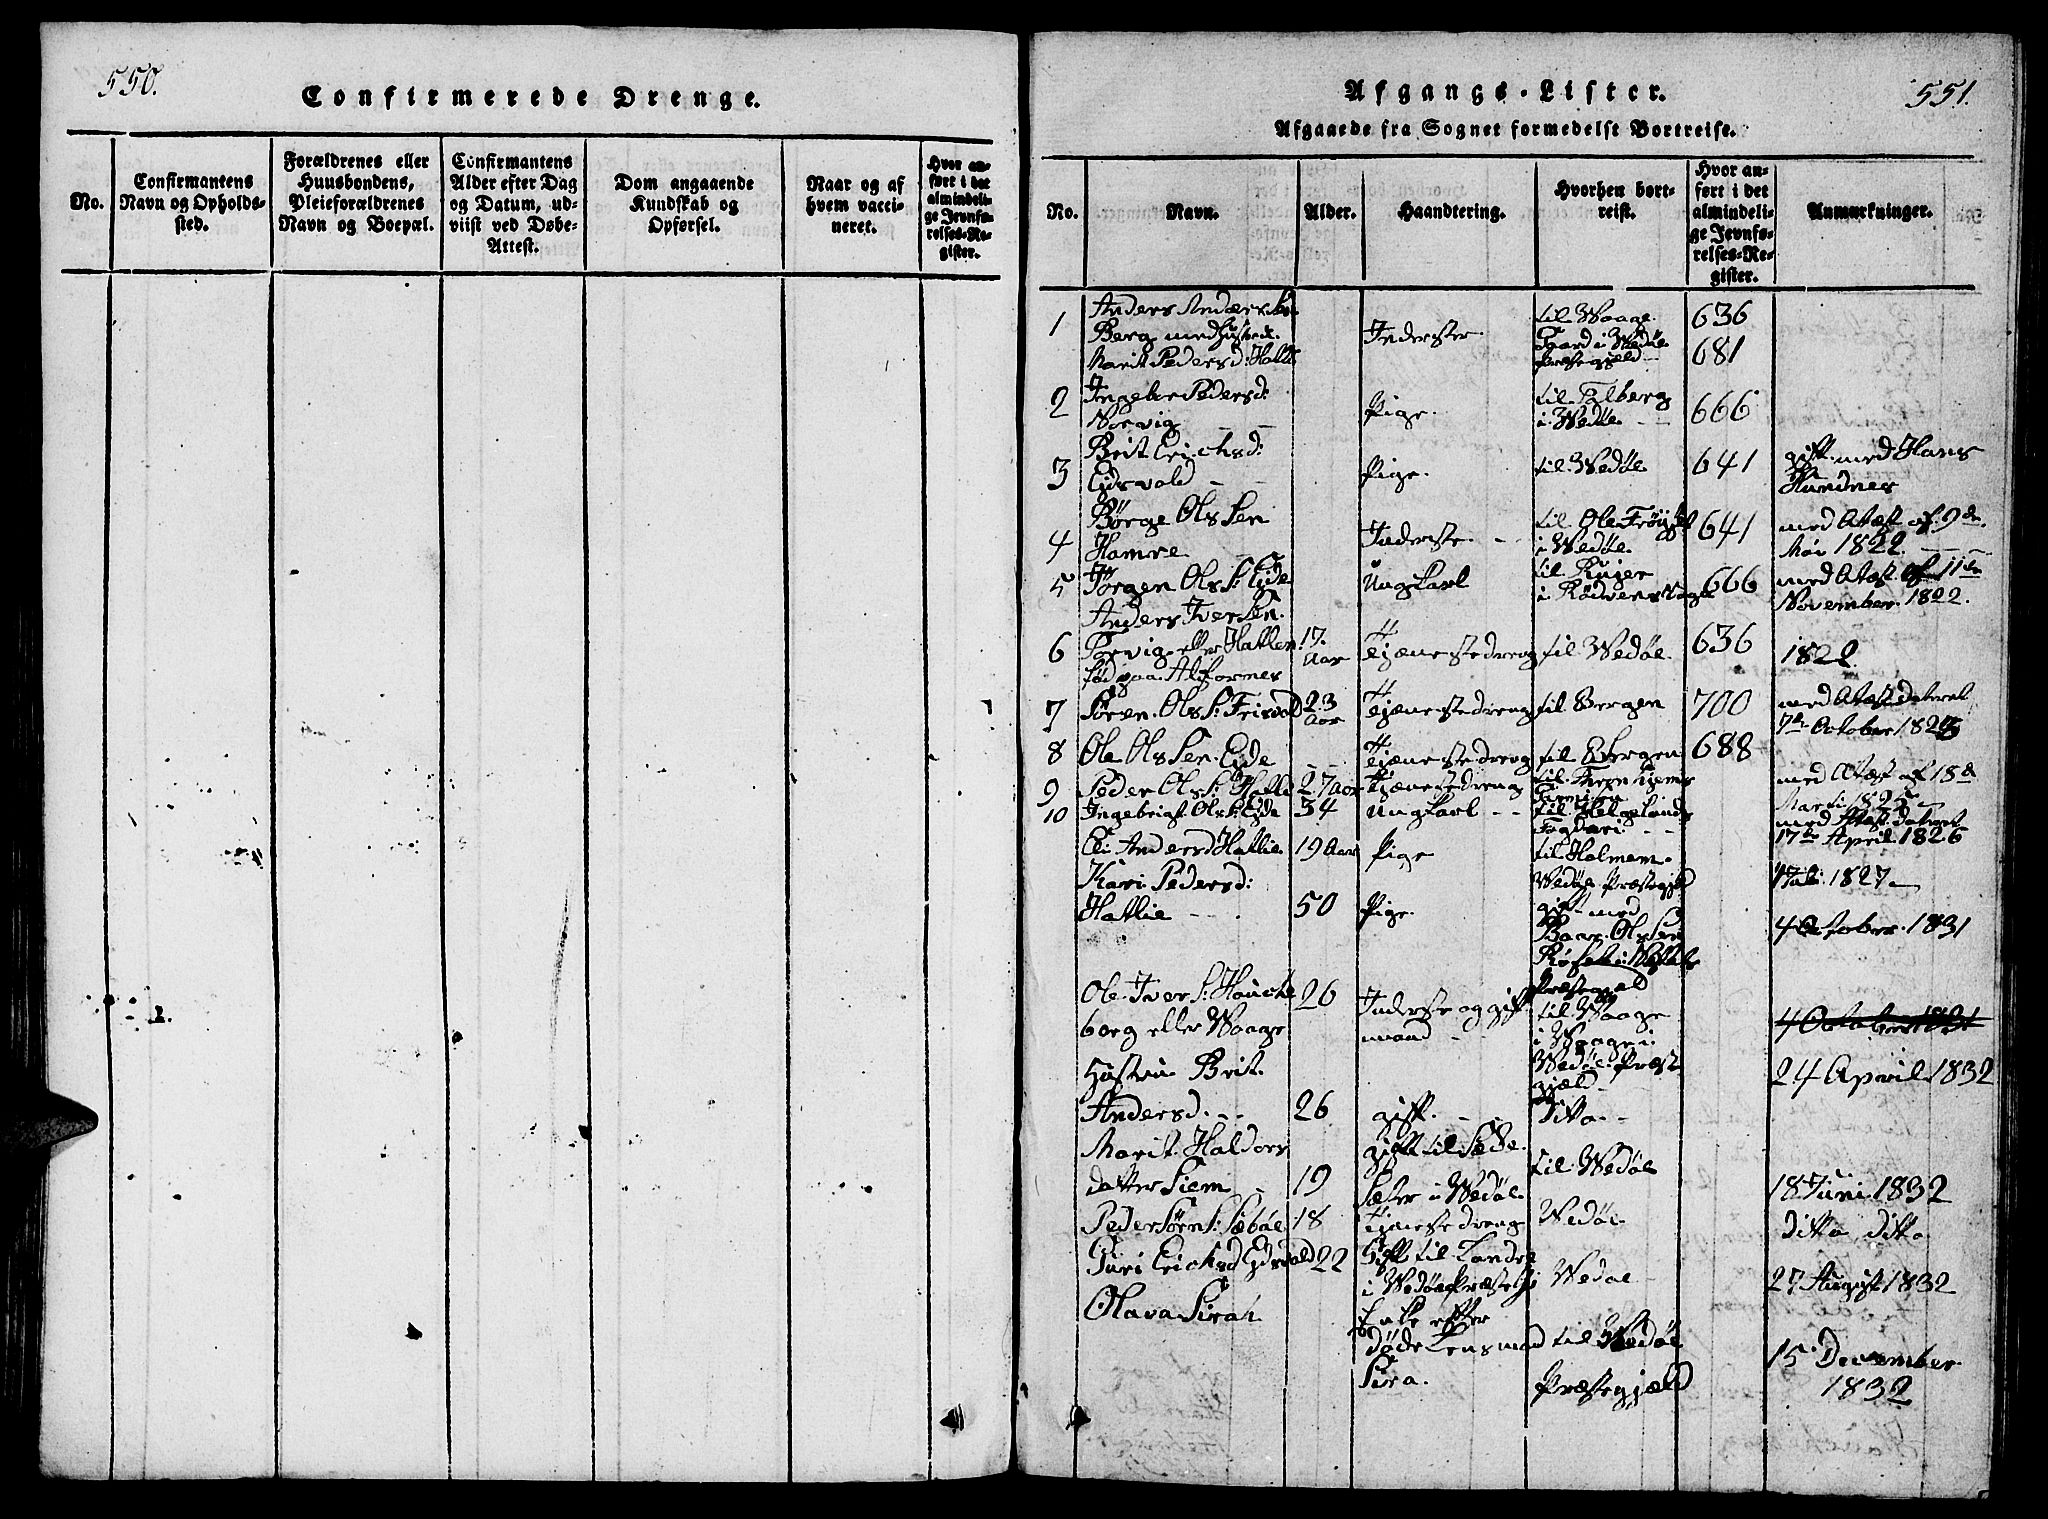 550.
Confirmerede Drenge.
No.
Confirmantens Navn og Opholds-sted.
Forældrenes eller Huusbondens, Pleieforældrenes Navn og Boepæl.
Confirmantens Alder efter Dag og Datum, ud-viist ved Døbe-Attest.
Dom angaaende Kundskab og Opførsel.
Naar og af hvem vacci-neret.
Hvor an-ført i det almindeli-ge Jevnfø-relses-Re-gister.
551.
Afgangs-Lister.
Afgaaede fra Sognet formedelst Bortreise.
No.
Navn.
Alder.
Haandtering.
Hvorhen bort-reist.
Hvor an-ført i det almindeli-ge Jevnfø-relses-Re-gister.
Anmærkninger.
1 Anders
Berg med
Marit Pedersd: Inderste til Waage
Gaard i Wedøe
Præstegjeld 636
681
2 Pedersd:
Norvig Pige. til
i Wedøe 666
3 Brit Erichsd:
Eidsvold Pige. til Wedøe 641 gift med Hans
Hundnes
4 Børge Olssen
Hamre Inderste til Ole
i Wedøe. 641 med Attest af 9de
1822.
5 Jørgen Ols S: Eide Ungkarl til
i 666 med Attest af 11te
November. 1822.
6 Anders Iversen
eller Hatlen
fød paa Alfarnes 17.
Aar Tjenestedreng til Wedøe 636 1822
7 Søren. Ols S: Frisvold 23
Aar Tjenestedreng til Bergen 700 med Attest dateret
7de October 182
8 Ole Olssen Eide Tjenestedreng til Bergen 688
9 Peder Ols S: Hatle 27 Aar Tjenestedreng til Med Attest af 18de
Marti 1825
10 Ingebrigt Ols S: Eide 34 Ungkarl til Helgelands
Fogderi med Attest dateret
17de April 1826
Eli Andersd Hatlie 19 Aar Pige til Holmem
Wedøe Præstegjeld 1827
Kari Pedersd:
Hatlie 50 Pige. gift med
Olssen
i
Præstegjeld 4 October 1831
Ole Ivers S:
borg eller Waage 26 Inderste og gift
mand til Waage
i Waage i
Wedøe Præst
gjeld 4 October 1831
24 April 1832
Hustru Brit
Andersd. 26 gift. Ditto
Marit Haldors
datter Siem 19 gift til
Sæter i Wedøe til Wedøe 18 Juni 1832
Peder Sørn S: Sæbøe 18 Tjenestedreng Wedøe ditto ditto
Guri Erichsd Eidsvold 22 Gift til
i Wedøe Præstegj Wedøe 27 August 1832
Olava Sirah Enke efter
døde Lensmand
Sira. til Wedøe
Præstegjæld 15 December
1832